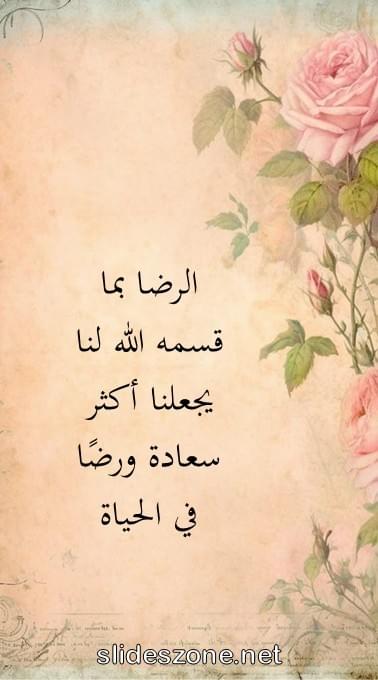 الرضا بما
قسمه الله لنا
يجعلنا أكثر
سعادة ورضًا
في الحياة
slideszone.net